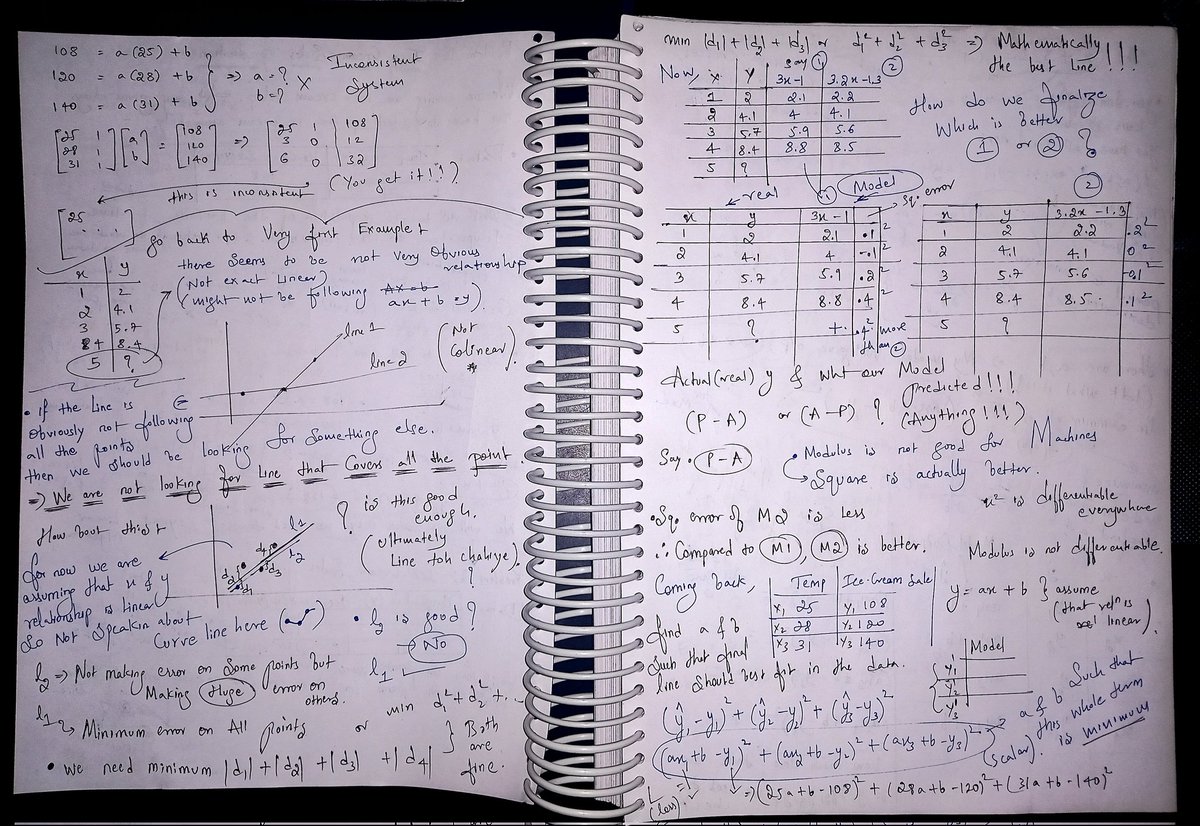 108 = a(25) + b
120 = a(28) + b } => a = ? X Inconsistent
b = ? System
140 = a(31) + b
[25 1 28 1 31 1] [a b] = [108 120 140] => [25 1 | 108 3 0 | 12 6 0 | 32]
this is inconsistent (You get it!!)
[25 . . .]
go back to Very first Example :
x y
1 2
2 4.1
3 5.7
4 8.4
5 ?
there seems to be not very Obvious
relationship
(Not exact Linear)
(might not be following
ax + b = y)
line 1
line 2
(Not
Colinear)
• if the line is
obviously not following
all the points
then we should be looking for something else.
=> We are not looking for line that Covers all the point
How bout this :
l1
l2
d1
d2
d3
d4
? is this good
enough.
(ultimately
Line toh chahiye)
?
for now we are
assuming that x & y
relationship is linear
So Not Speakin about
Curve line here
• l2 is good ?
No
l1 ✓
l2 => Not making error on Some points but
Making Huge error on
others.
l1 Minimum error on All points or min d1² + d2² + ..
} Both
are
fine.
• we need minimum |d1| + |d2| + |d3| + |d4|
min |d1| + |d2| + |d3| or d1² + d2² + d3² => Mathematically
the best Line !!!
say 1 2
Now, x y 3x-1 3.2x-1.3
1 2 2.1 2.2
2 4.1 4 4.1
3 5.7 5.9 5.6
4 8.4 8.8 8.5
5 ?
How do we finalize
Which is better
1 or 2 ?
real 1 Model
sq. error
x y 3x-1
1 2 2.1 .1²
2 4.1 4 -.1²
3 5.7 5.9 .2²
4 8.4 8.8 .4²
5 ?
more
than 2
2
x y 3.2x-1.3
1 2 2.2 .2²
2 4.1 4.1 0²
3 5.7 5.6 -.1²
4 8.4 8.5 .1²
5 ?
Actual (real) y & what our Model
predicted !!!
(P-A) or (A-P) ? (Anything!!!)
Say • P-A
• Modulus is not good for Machines
Square is actually better.
x² is differentiable
everywhere
Modulus is not differentiable.
• Sq. error of M2 is less
∴ Compared to M1, M2 is better.
Coming back,
Temp Ice-Cream Sale
x1 25 y1 108
x2 28 y2 120
x3 31 y3 140
y = ax + b } assume
(that rel^n is
linear)
find a & b
Such that final
line should best fit in the data.
Model
y1'
y2'
y3'
(ŷ1 - y1)² + (ŷ2 - y2)² + (ŷ3 - y3)²
(ax1 + b - y1)² + (ax2 + b - y2)² + (ax3 + b - y3)²
(scalar)
a & b Such that
this whole term
is minimum
L
(loss)
=> (25a + b - 108)² + (28a + b - 120)² + (31a + b - 140)²